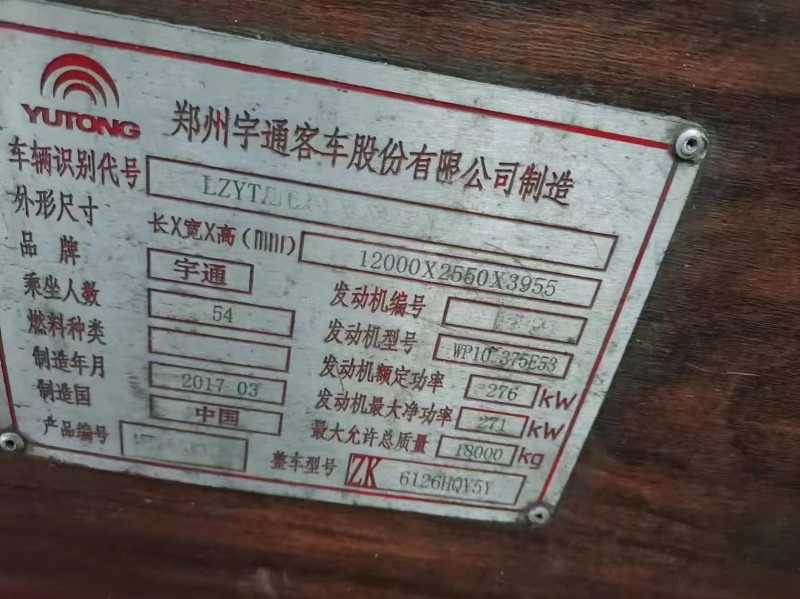 YUTONG
郑州宇通客车股份有限公司制造
车辆识别代号 LZYT
外形尺寸 长X宽X高(mm) 12000X2550X3955
品牌 宇通 发动机编号
乘坐人数 54 发动机型号 WP10.375E53
燃料种类 发动机额定功率 276 kW
制造年月 2017 03 发动机最大净功率 271 kW
制造国 中国 最大允许总质量 18000 kg
产品编号 整车型号 ZK 6126HQY5Y